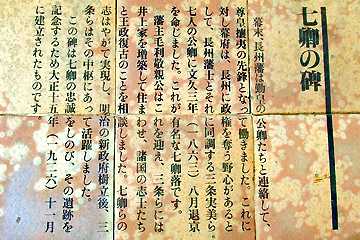 七卿の碑
幕末、長州藩は勤皇の公卿たちと連絡して、
尊皇攘夷の先鋒となって働きました。これに
対し幕府は、長州に政権を奪う野心があると
して、長州藩士とそれに同調する三条実美ら
七人の公卿に文久三年(一八六三)八月退京
を命じました。これが有名な七卿落です。
藩主毛利敬親公はこれを迎え、三条らには
井上家を増築して住まわせ、諸国の志士たち
と王政復古のことを相談しました。七卿らの
志はやがて実現し、明治の新政府樹立後、三
条らはその中枢にあって活躍しました。
この碑は七卿の忠誠をしのび、その遺跡を
記念するため大正十五年(一九二六)十一月
に建立されたものです。